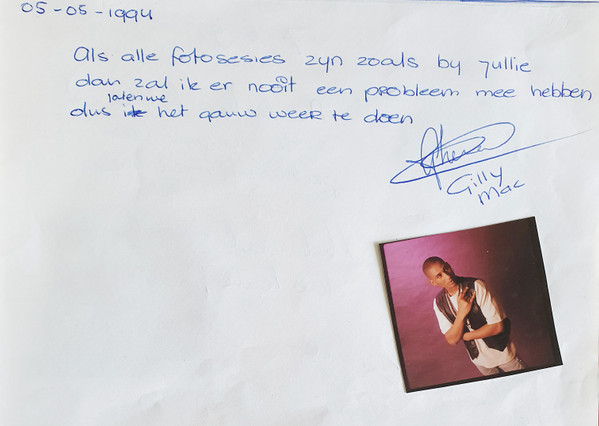 05-05-1994
Als alle fotosesies zyn zoals by jullie
dan zal ik er nooit een probleem mee hebben
laten we
dus het gauw weer te doen
Gilly
Mac